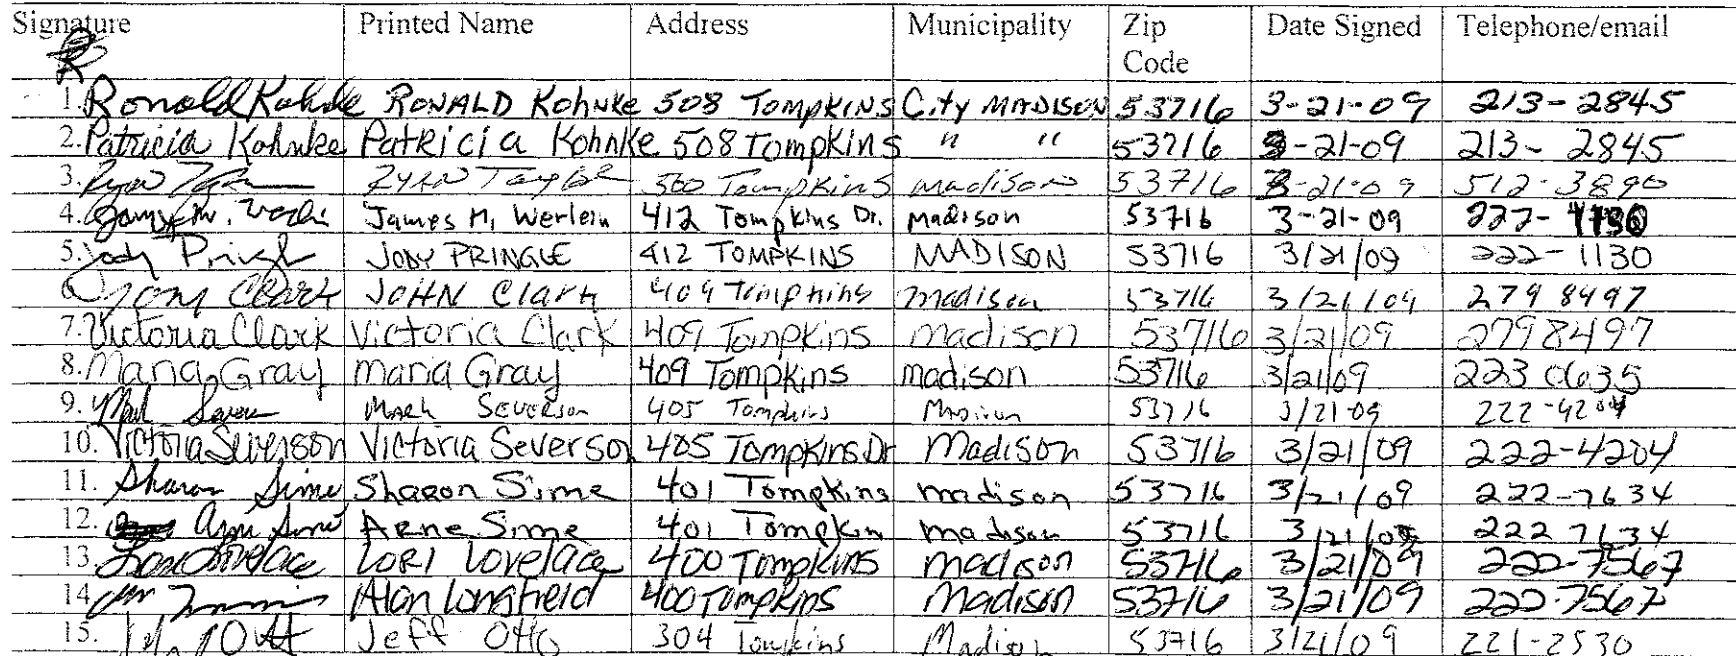 Signature Printed Name Address Municipality Zip Code Date Signed Telephone/email
1. Ronald Kohnke RONALD Kohnke 508 Tompkins City MADISON 53716 3-21-09 213-2845
2. Patricia Kohnke Patricia Kohnke 508 Tompkins " " 53716 3-21-09 213-2845
3. Ryan 500 Tompkins madison 53716 3-21-09 512-3890
4. James M. Werlein 412 Tompkins Dr. Madison 53716 3-21-09 222-
5. Jody Pringle JODY PRINGLE 412 TOMPKINS MADISON 53716 3/21/09 222-1130
6. Clark JOHN Clark 409 Tompkins Madison 53716 3/21/09 279 8497
7. Victoria Clark Victoria Clark 409 Tompkins Madison 53716 3/21/09 279 8497
8. Maria Gray maria Gray 409 Tompkins madison 53716 3/21/09 223 0635
9. Mark Severson 405 Tompkins Madison 53716 3/21/09 222-4204
10. Victoria Severson Victoria Severson 405 Tompkins Dr Madison 53716 3/21/09 222-4204
11. Sharon Sime Sharon Sime 401 Tompkins madison 53716 3/21/09 222-7634
12. Arne Sime Arne Sime 401 Tompkin Madison 53716 3/21/09 222 7634
13. Lori Lovelace LORI Lovelace 400 Tompkins Madison 53716 3/21/09 222-7567
14. Alan Longfield 400 Tompkins Madison 53716 3/21/09 222-7567
15. Jeff Otto 304 Tompkins Madison 53716 3/21/09 221-2530